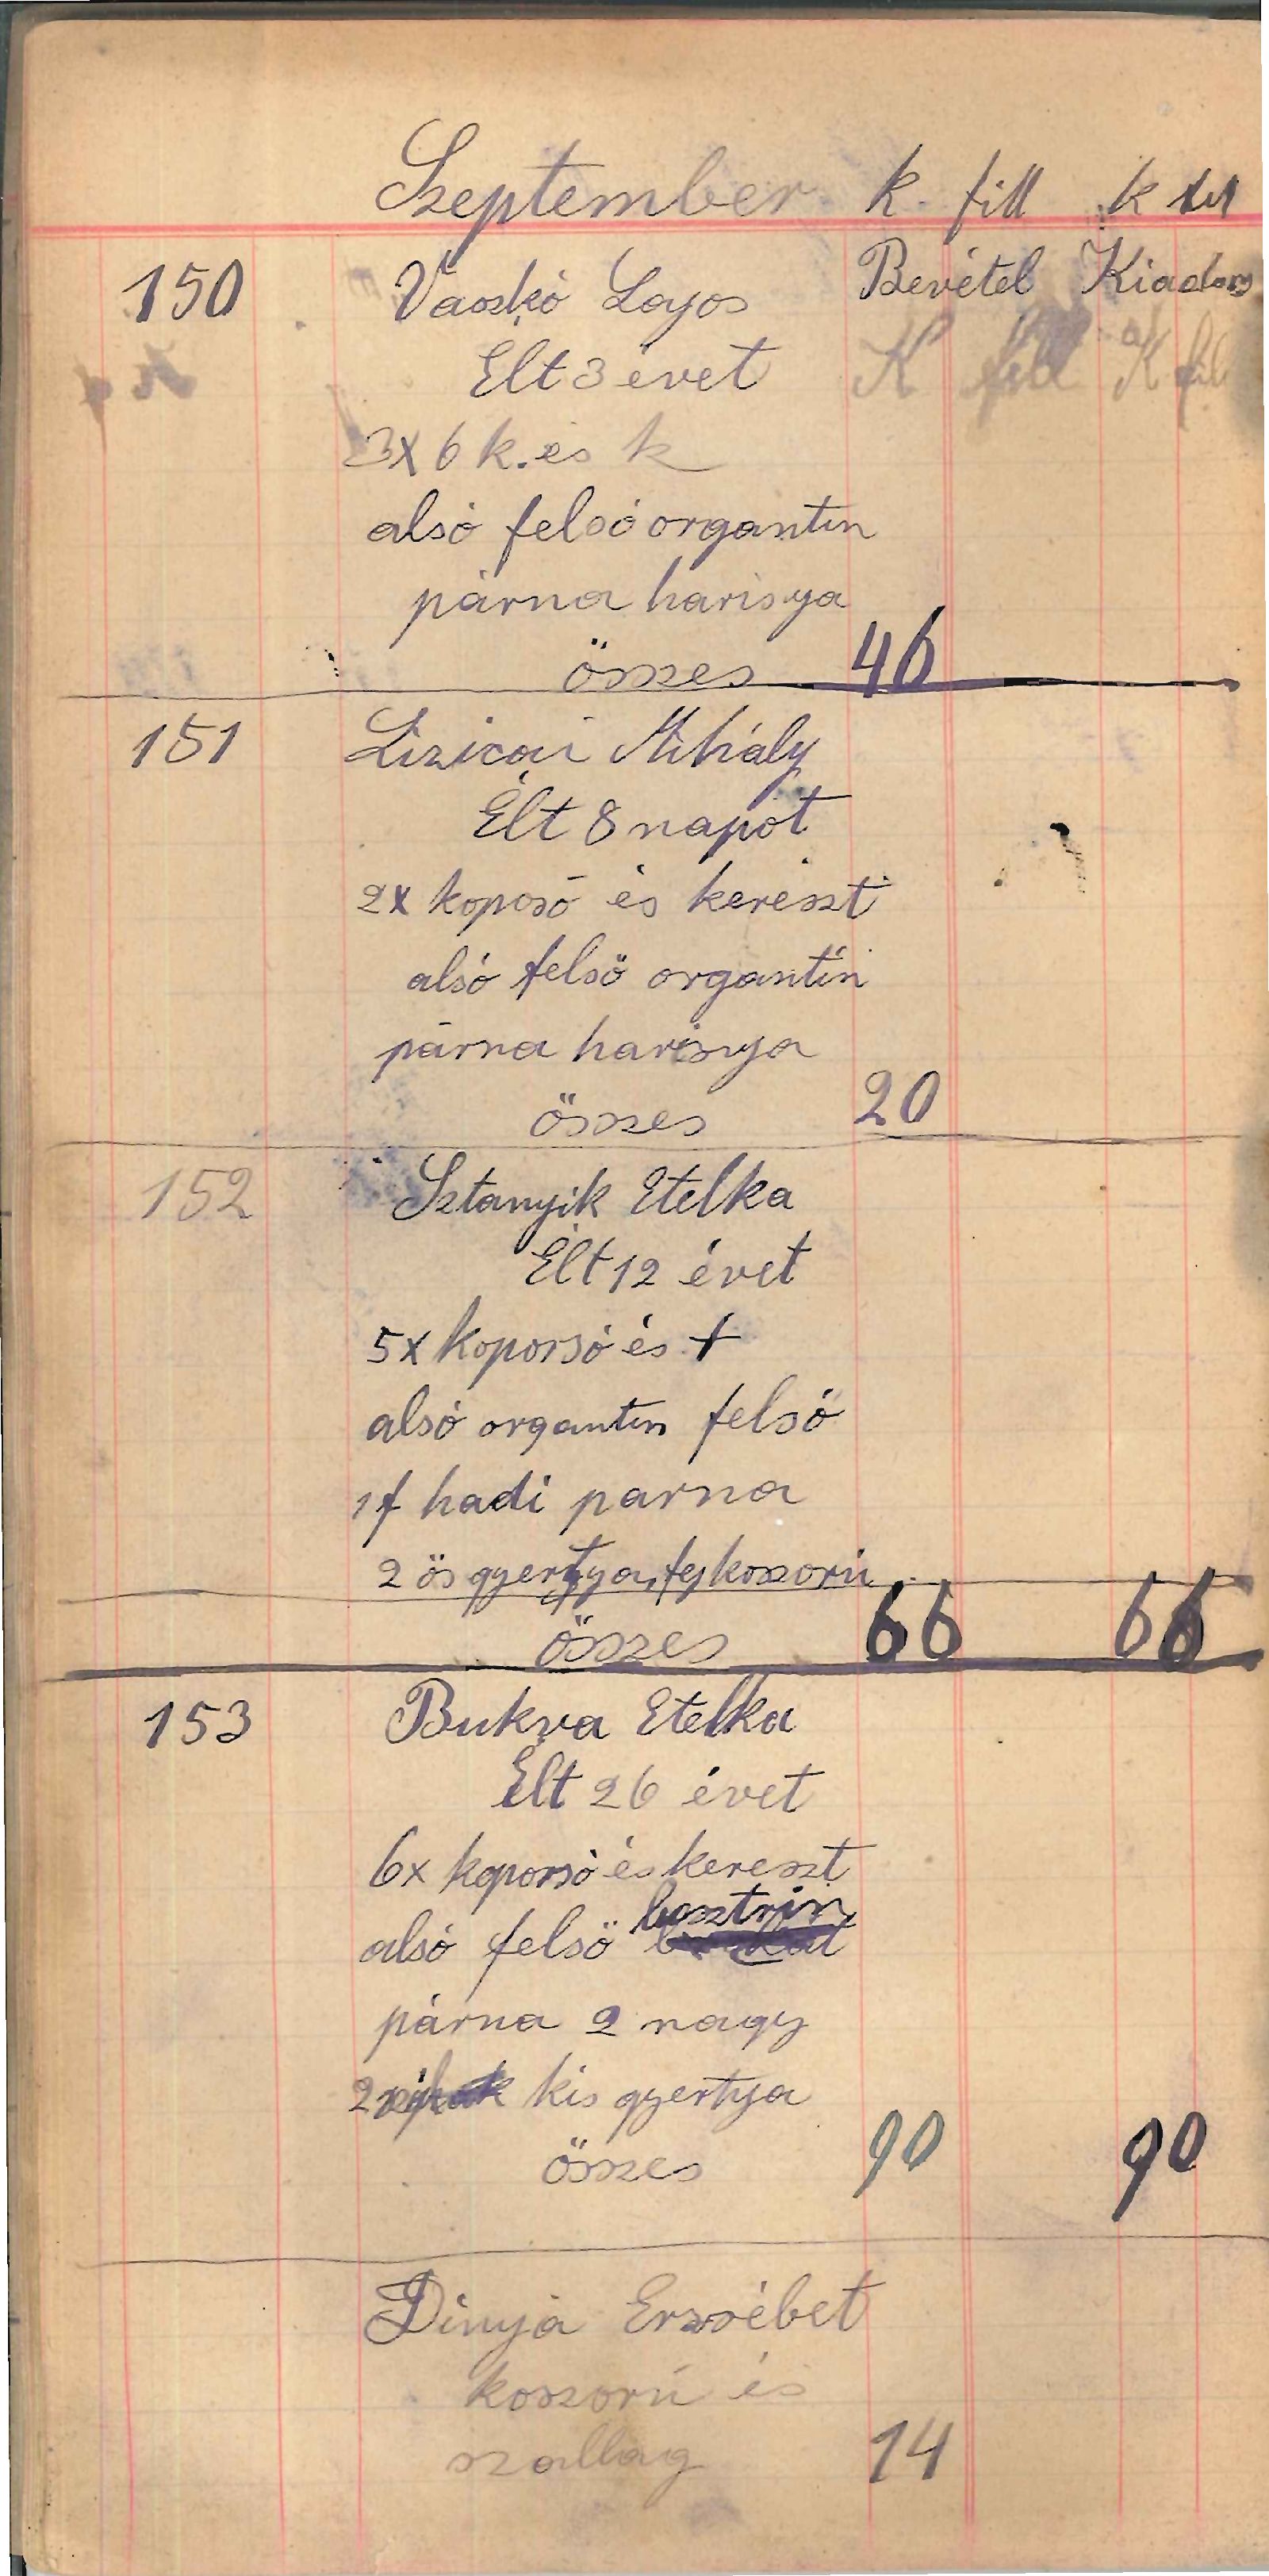 Szeptember k. fill k fill
150 Vaszkó Lajos Bevétel Kiadas
Élt 3 évet K fill K fil
3x6 k. és k
alsó felsó organtin
párna harisya
összes 46
151 Lizicai Mihály
Élt 8 napot
2x koposó és kereszt
alsó felsö organtin
párna harisnya
összes 20
152 Sztanyik Etelka
Élt 12 évet
5x koporsó és +
alsó organtin felsó
1f hadi parna
2 ös gyertya, fejkoszorú
összes 66 66
153 Bukva Etelka
Élt 26 évet
6x koporsó és kereszt
alsó felsö
párna 2 nagy
2 kis gyertya
összes 90 90
Dinya Erzsébet
koszorú és
szallag 14